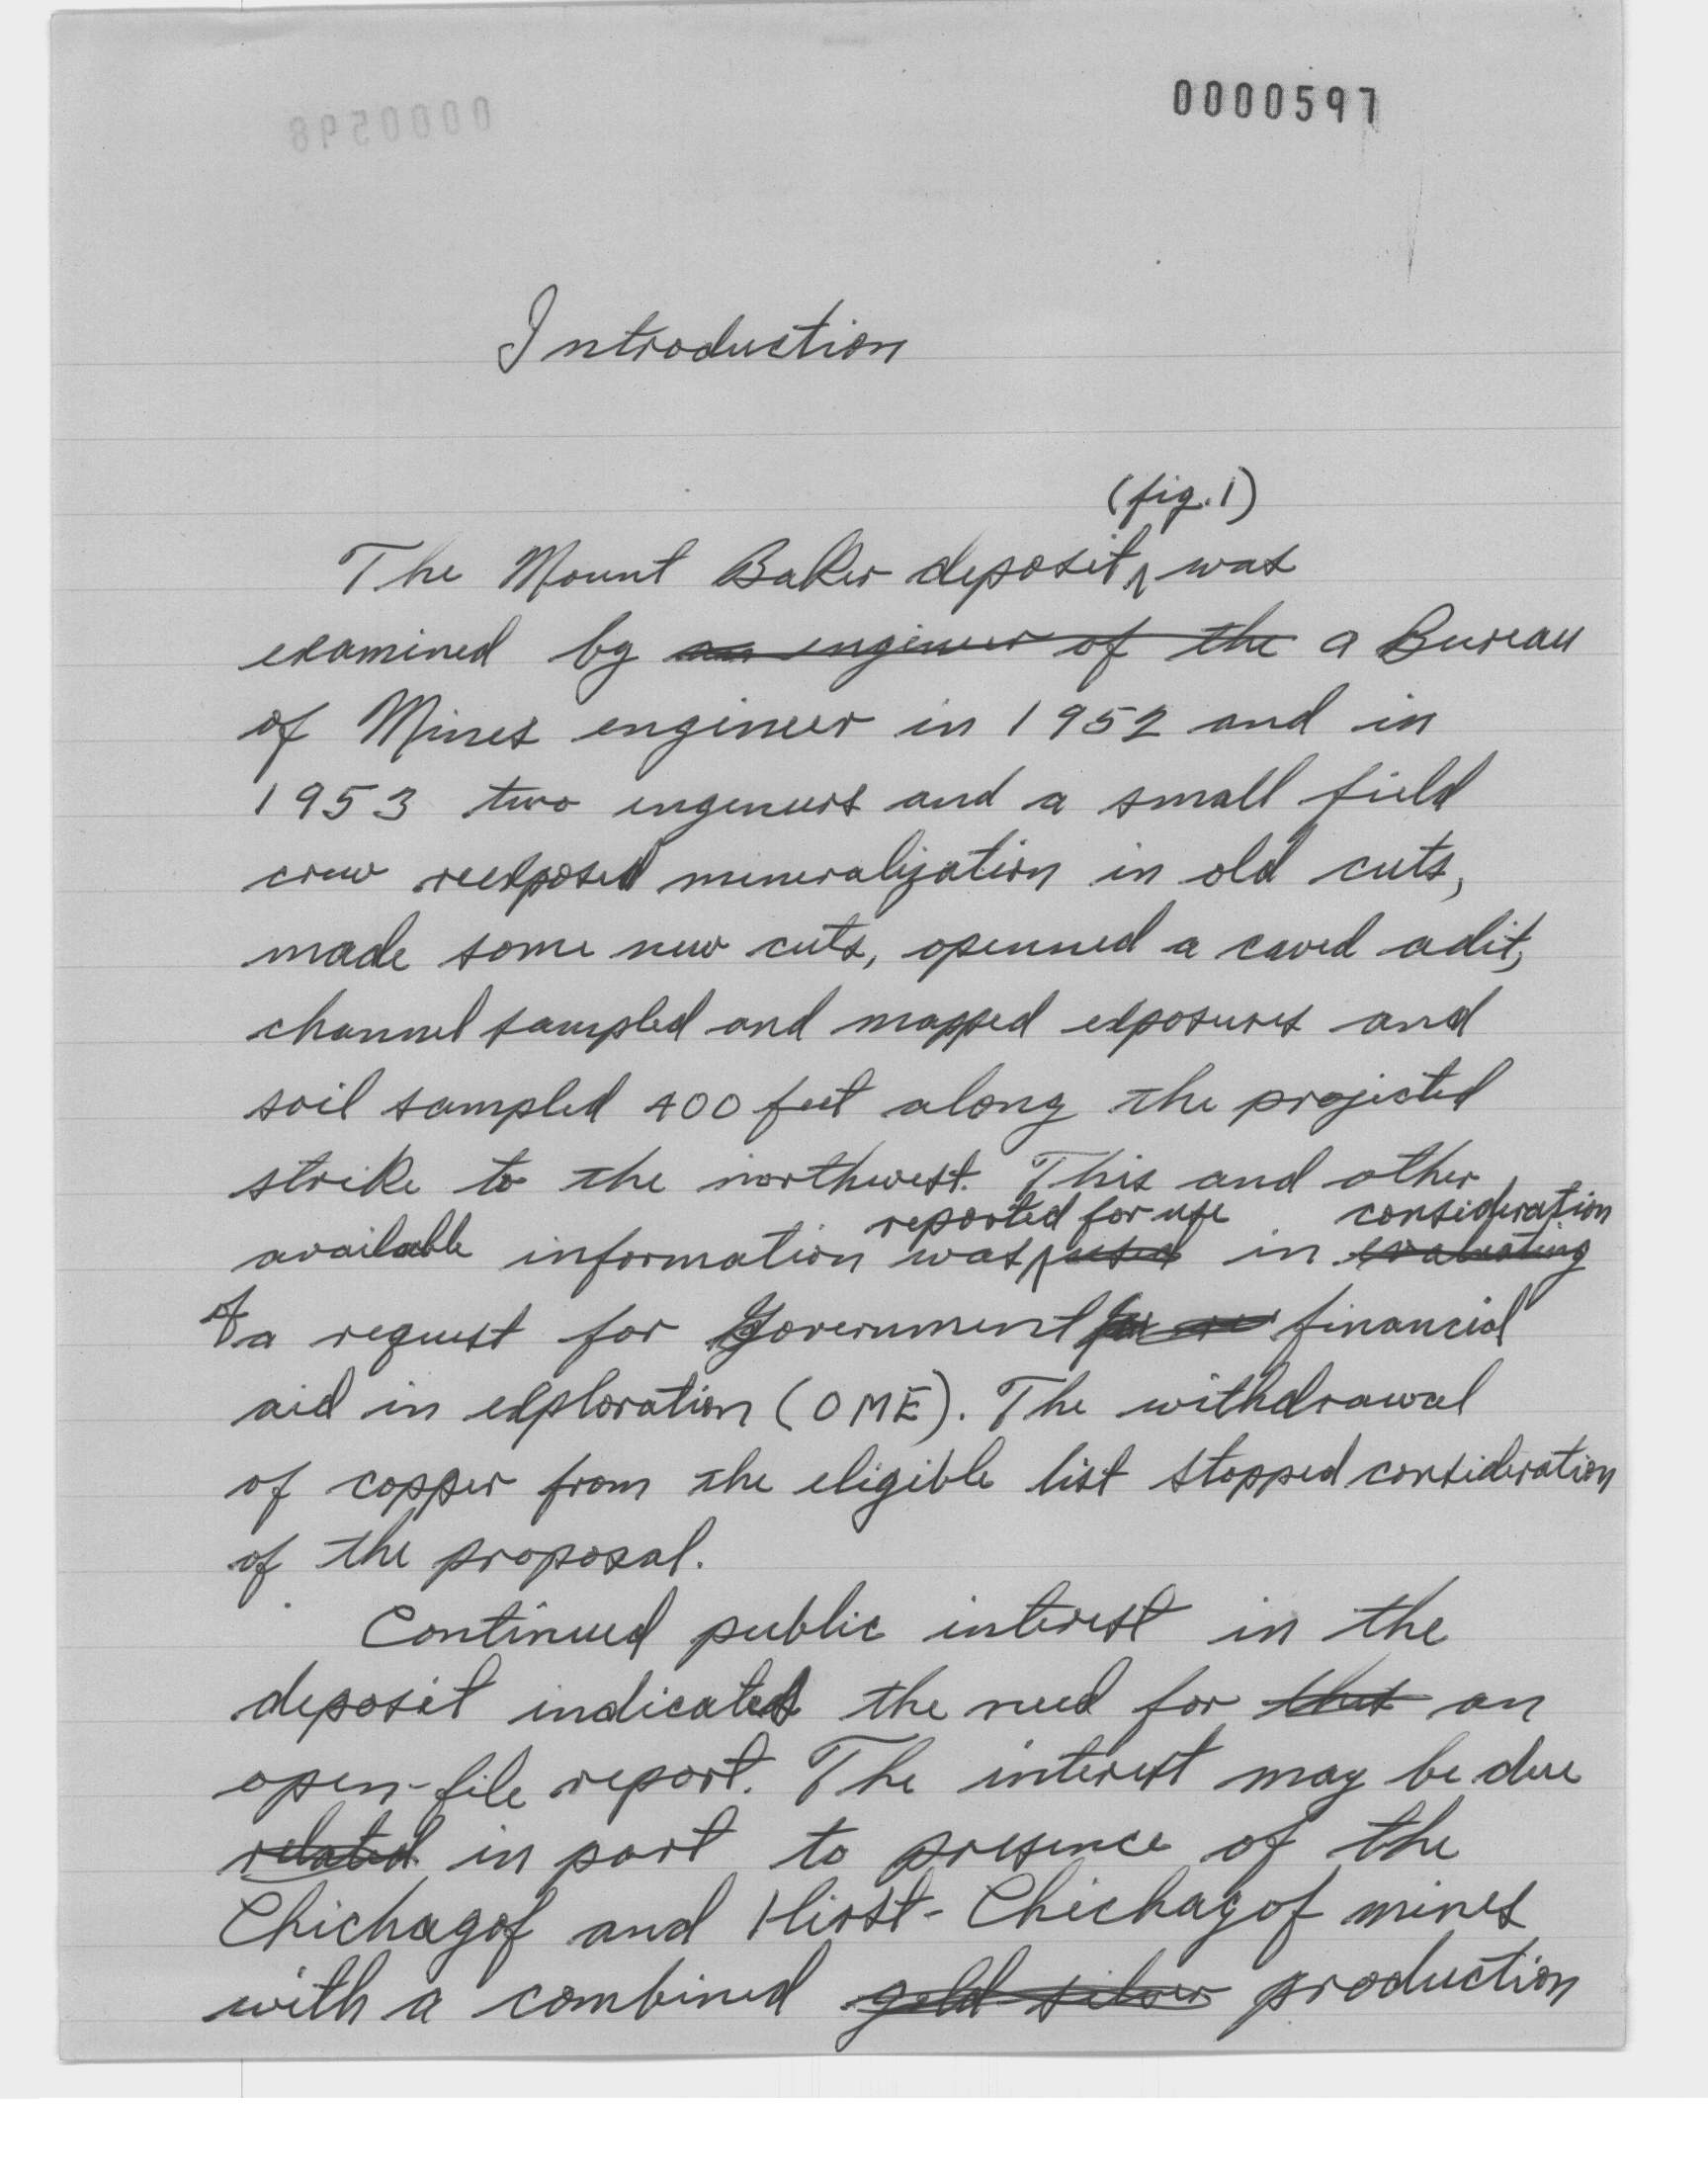 0000597
0000598
Introduction
(fig. 1)
The Mount Baker deposit ^ was
examined by an engineer of the a Bureau
of Mines engineer in 1952 and in
1953 two engeneers and a small field
crew reexposed mineralization in old cuts,
made some new cuts, openned a caved adit,
channel sampled and mapped exposures and
soil sampled 400 feet along the projected
strike to the northwest. This and other
reported for use consideration
available information was ^ used in evaluating
of a request for Government financial
aid in exploration (OME). The withdrawal
of copper from the eligible list stopped consideration
of the proposal.
Continued public interest in the
deposit indicated the need for that an
open-file report. The interest may be due
related in part to presence of the
Chichagof and Hirst-Chichagof mines
with a combined gold silver production